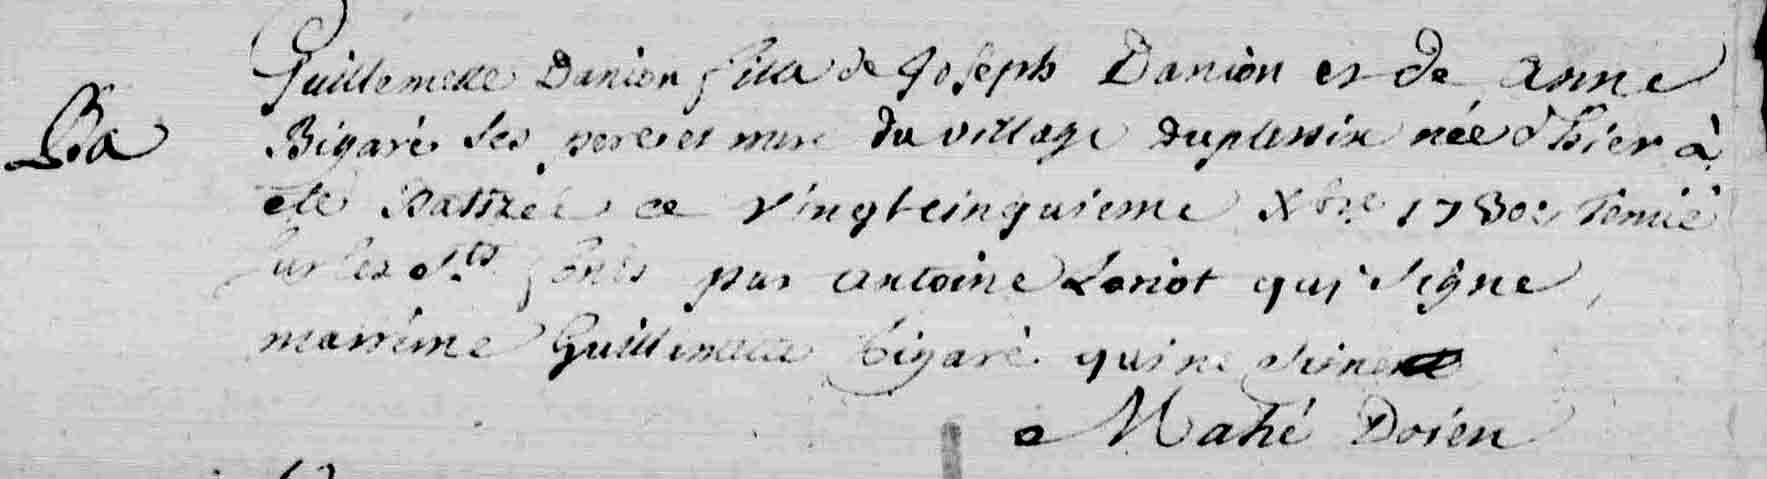 Guillemette Danion fille de Joseph Danion et de anne
Ba
Bigaré ses pere et mere du village duplessix née d'hier à
été Batizée ce vingtcinquieme Xbre 1780: tenüe
sur les sts fonts par antoine Loriot qui signe,
marreine Guillemette bigaré qui ne
Mahé Doien